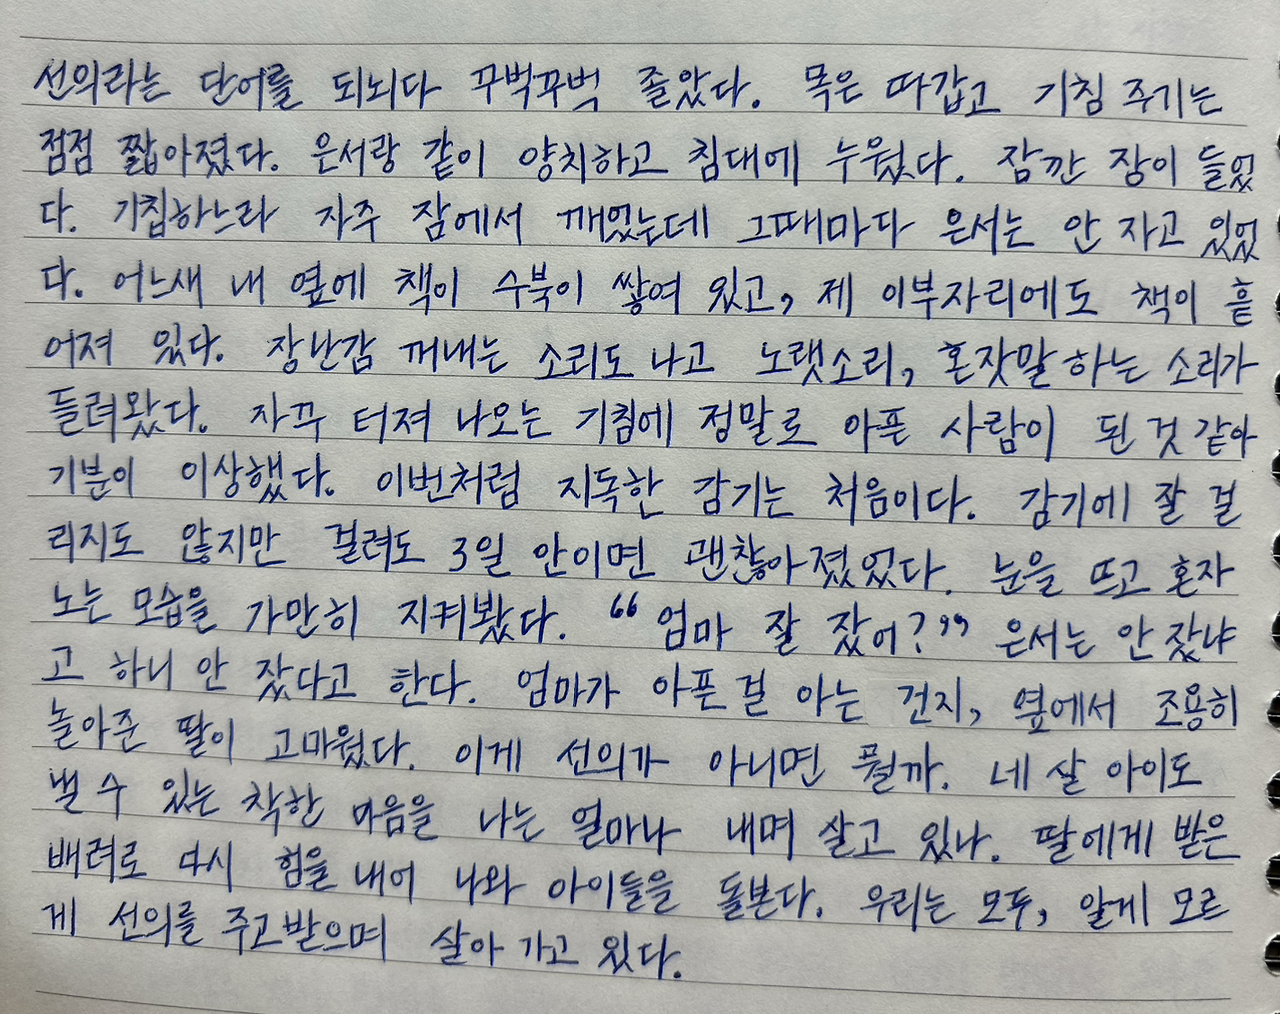 선의라는 단어를 되뇌다 꾸벅꾸벅 졸았다. 목은 따갑고 기침 주기는
점점 짧아졌다. 은서랑 같이 양치하고 침대에 누웠다. 잠깐 잠이 들었
다. 기침하느라 자주 잠에서 깨었는데 그때마다 은서는 안 자고 있었
다. 어느새 내 옆에 책이 수북이 쌓여 있고, 제 이부자리에도 책이 흩
어져 있다. 장난감 꺼내는 소리도 나고 노랫소리, 혼잣말 하는 소리가
들려왔다. 자꾸 터져 나오는 기침에 정말로 아픈 사람이 된 것 같아
기분이 이상했다. 이번처럼 지독한 감기는 처음이다. 감기에 잘 걸
리지도 않지만 걸려도 3일 안이면 괜찮아졌었다. 눈을 뜨고 혼자
노는 모습을 가만히 지켜봤다. “엄마 잘 잤어?” 은서는 안 잤냐
고 하니 안 잤다고 한다. 엄마가 아픈 걸 아는 건지, 옆에서 조용히
놀아준 딸이 고마웠다. 이게 선의가 아니면 뭘까. 네 살 아이도
낼 수 있는 착한 마음을 나는 얼마나 내며 살고 있나. 딸에게 받은
배려로 다시 힘을 내어 나와 아이들을 돌본다. 우리는 모두, 알게 모르
게 선의를 주고받으며 살아 가고 있다.